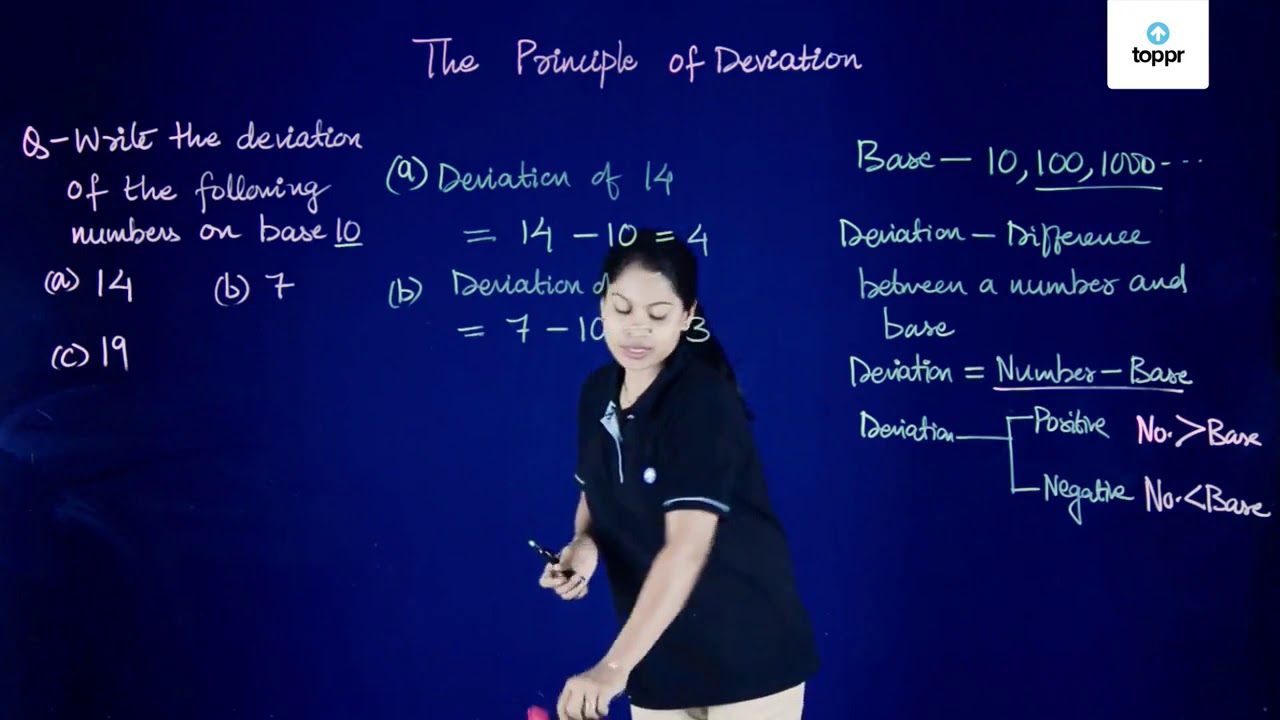 toppr
The Principle of Deviation
Q-Write the deviation
of the following
numbers on base 10
(a) 14 (b) 7
(c) 19
(a) Deviation of 14
= 14 - 10 = 4
(b) Deviation o
= 7 - 10 3
Base - 10, 100, 1000 - - -
Deviation - Difference
between a number and
base
Deviation = Number - Base
Deviation
Positive No. > Base
Negative No. < Base